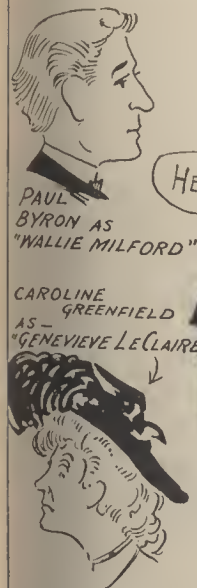 PAUL
BYRON AS
"WALLIE MILFORD"
HE
CAROLINE
GREENFIELD
AS—
"GENEVIEVE LECLAIRE